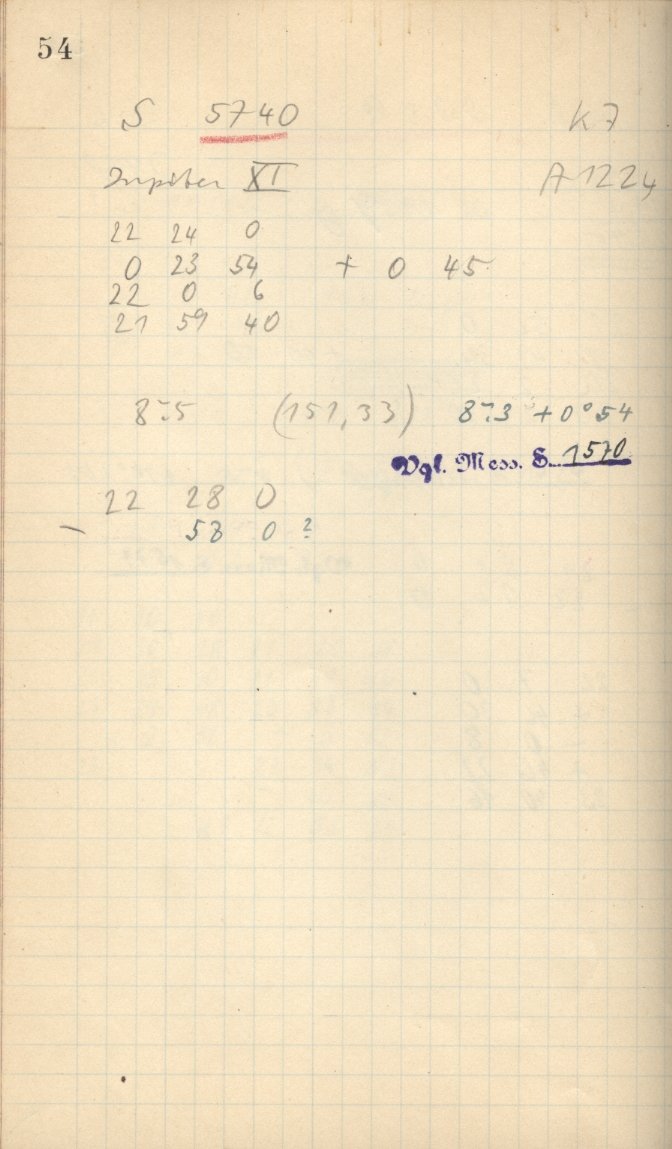 54
S 5740 K7
Jupiter XI A 1224
22 24 0
0 23 54 + 0 45
22 0 6
21 59 40
8ᵐ.5 (151,33) 8ᵐ.3 + 0° 54
Vgl. Mess. S. 1570
22 28 0
– 58 0 ?